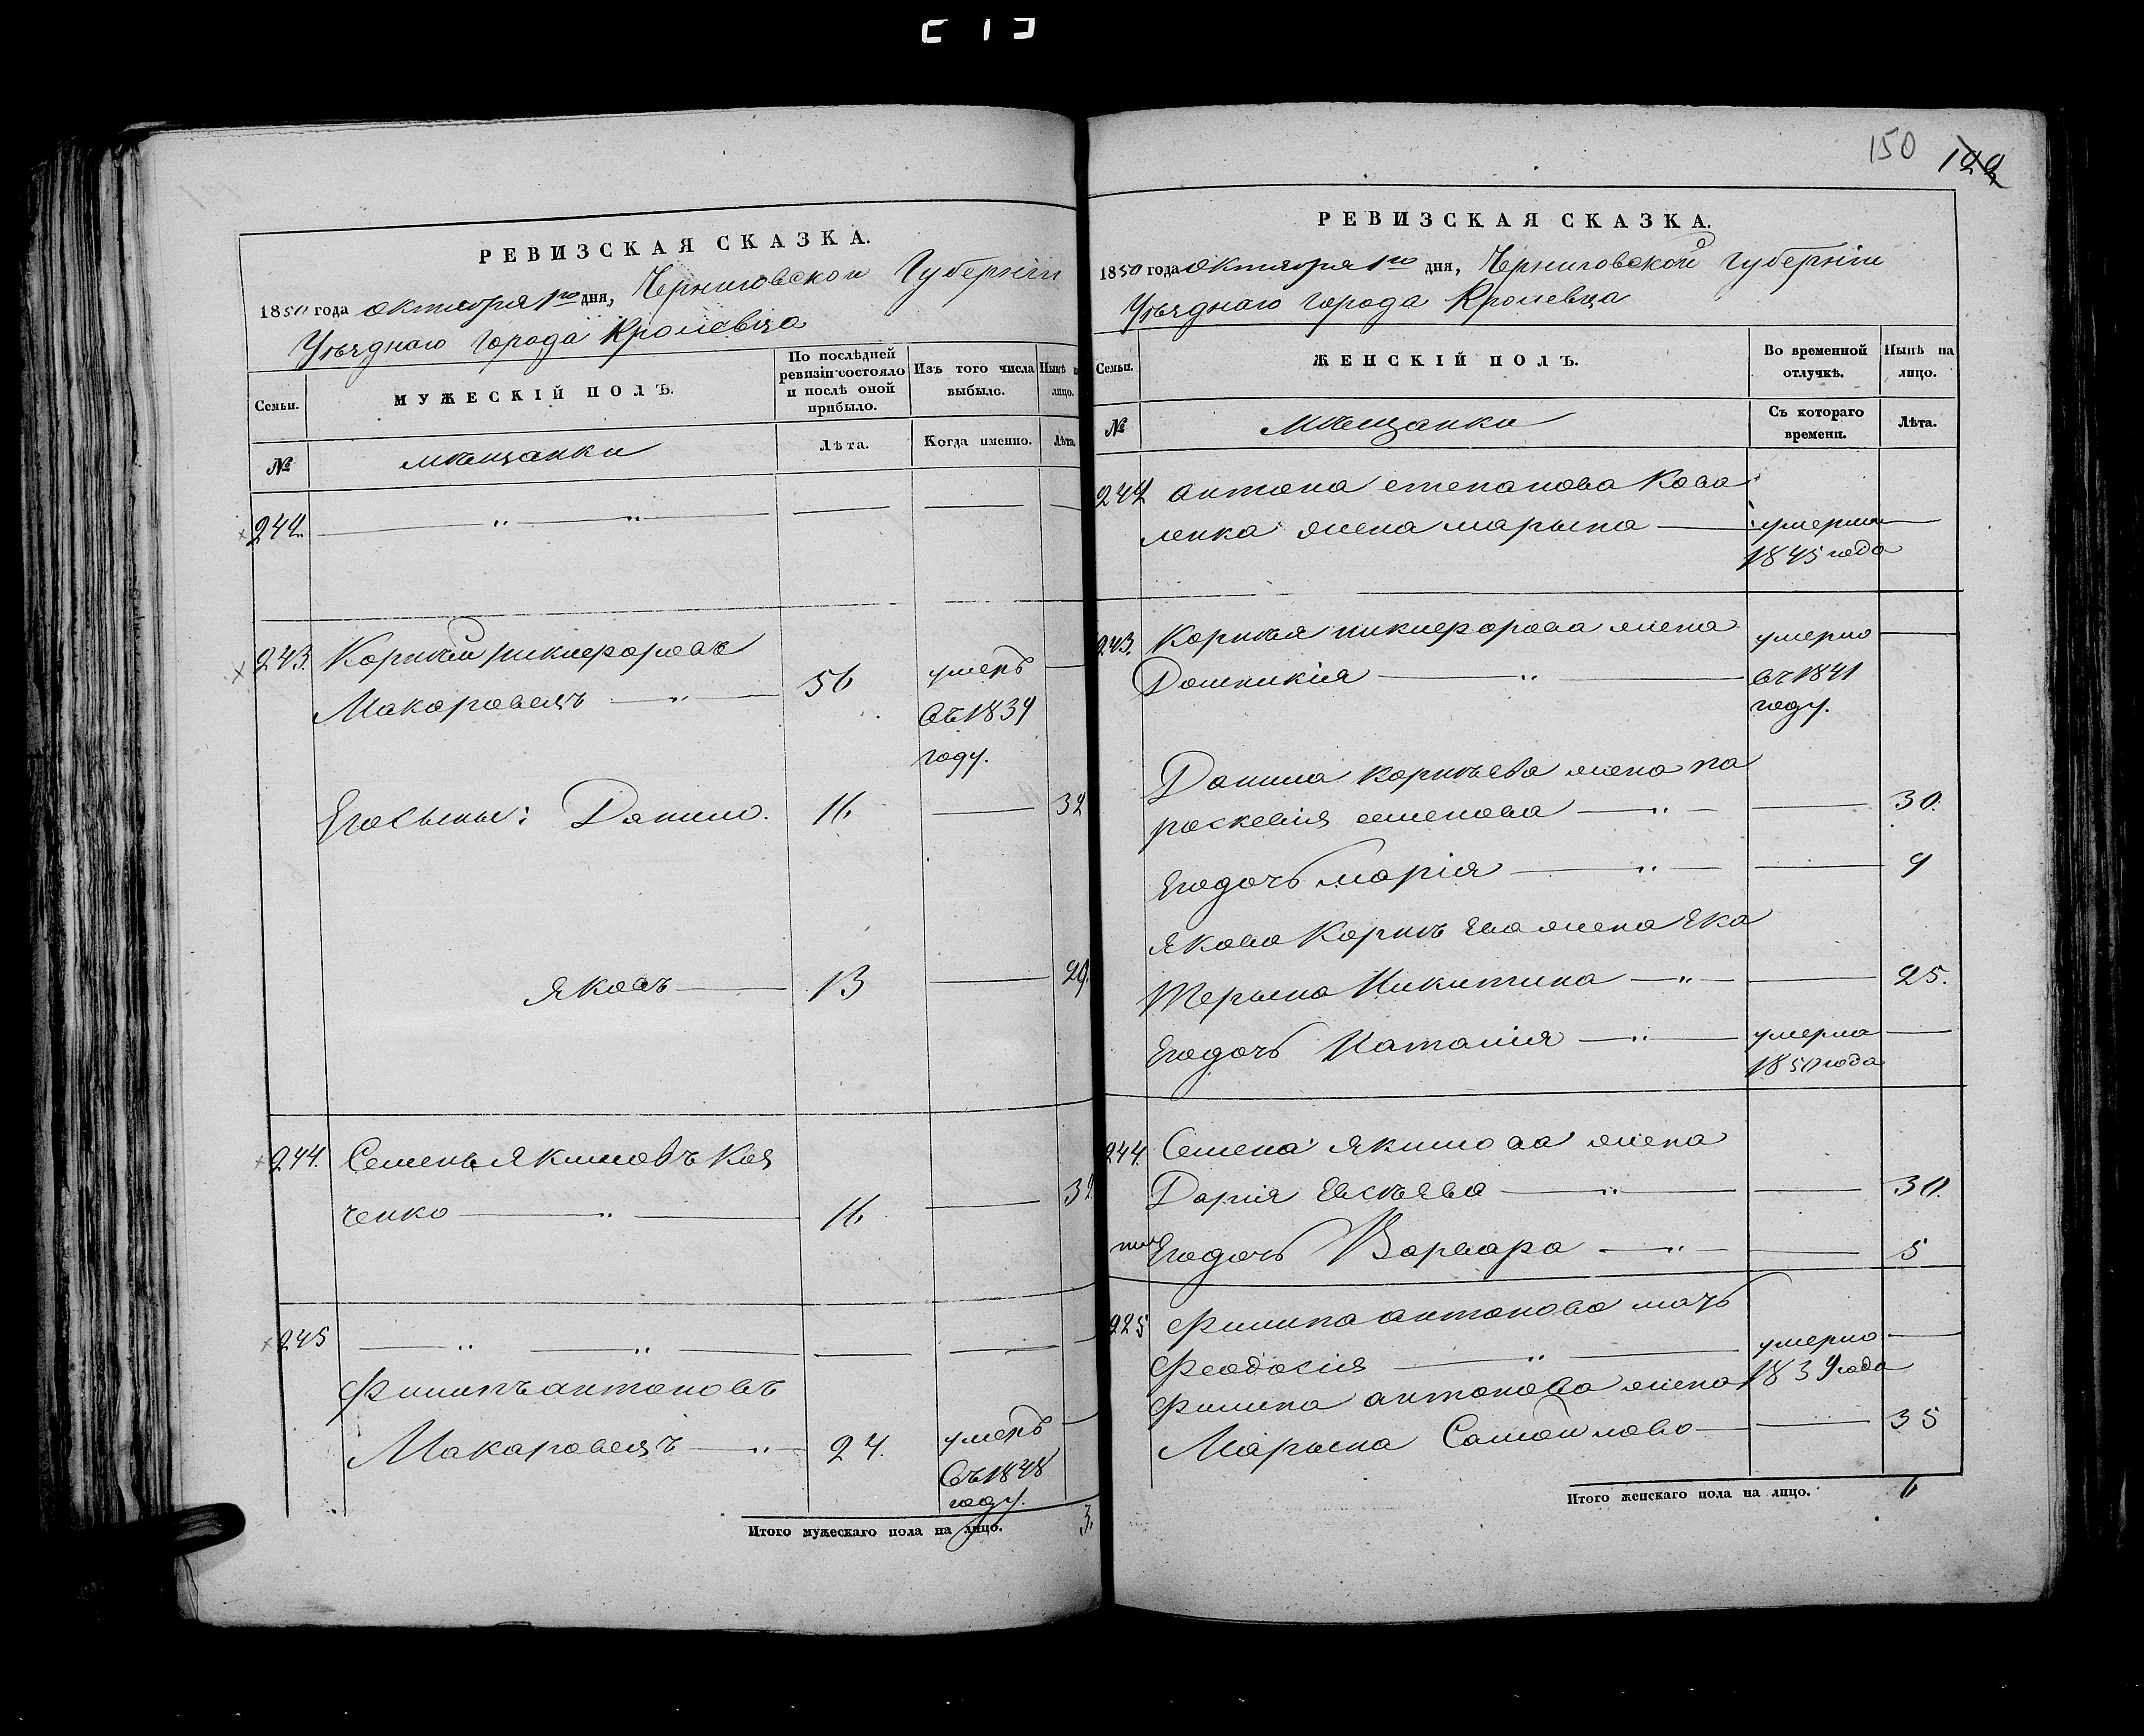 150 122
РЕВИЗСКАЯ СКАЗКА.
1850 года октября 1го дня, Черниговской Губерніи
Уѣзднаго города Кролевца
Семьи.
МУЖЕСКІЙ ПОЛЪ.
По послѣдней ревизіи состояло и послѣ оной прибыло.
Изъ того числа выбыло.
Нынѣ на лицо.
№
мѣщанки
Лѣта.
Когда именно.
Лѣта.
242.
243. Корнѣй никифоровъ
Макаровецъ 56 умеръ
въ 1839
году.
Его сыны: Данило. 16 32
Яковъ 13 29.
244. Семенъ Якимовъ Коз
ченко 16 32
245
Филипъ антоновъ
Макаровецъ 24. умеръ
въ 1848
году.
Итого мужескаго пола на лицо. 3.
РЕВИЗСКАЯ СКАЗКА.
1850 года октября 1го дня, Черниговской губерніи
Уѣзднаго города Кролевца
Семьи.
ЖЕНСКІЙ ПОЛЪ.
Во временной отлучкѣ.
Нынѣ на лицо.
№
мѣщанки
Съ котораго времени.
Лѣта.
242 антона степанова Кова
ленка жена марьина умерла
1845 года
243. Корнѣя никифорова жена умерла
Домникія въ 1841
году.
Данила корнѣева жена па
раскевія семенова 30.
Его дочь марія 9
Якова Корнѣева жена Ека
терина Никитина 25.
Его дочь Наталія умерла
1850 года
244. Семена Якимова жена
Дарія Евсѣева 30.
Его дочь Варвара 5
225 Филипа антонова мать
Феодосія умерла
1839 года
Филипа антонова жена
Марьина Самойлова 35
Итого женскаго пола на лицо. 6